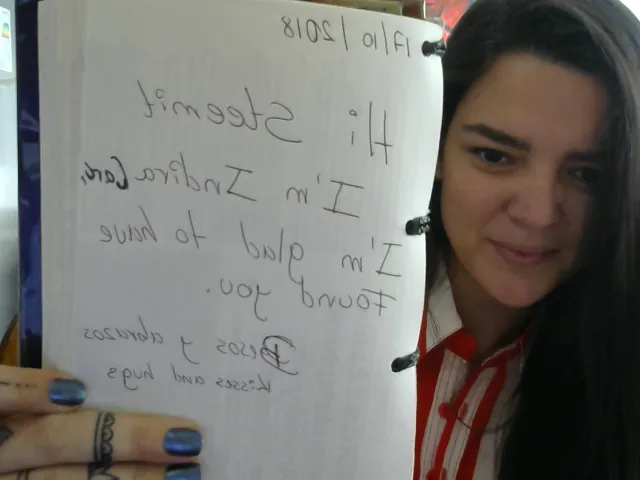 17/10/2018
Hi Steemit
I'm Indira
I'm glad to have
Found you.
Besos y abrazos
kisses and hugs